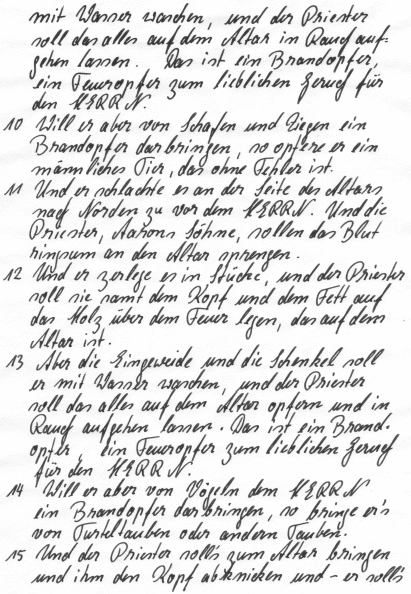 mit Wasser waschen, und der Priester
soll das alles auf dem Altar in Rauch auf-
gehen lassen. Das ist ein Brandopfer,
ein Feueropfer zum lieblichen Geruch für
den HERRN.
10 Will er aber von Schafen und Ziegen ein
Brandopfer darbringen, so opfere er ein
männliches Tier, das ohne Fehler ist.
11 Und er schlachte es an der Seite des Altars
nach Norden zu vor dem HERRN. Und die
Priester, Aarons Söhne, sollen das Blut
ringsum an den Altar sprengen.
12 Und er zerlege es in Stücke, und der Priester
soll sie samt dem Kopf und dem Fett auf
das Holz über dem Feuer legen, das auf dem
Altar ist.
13 Aber die Eingeweide und die Schenkel soll
er mit Wasser waschen, und der Priester
soll das alles auf dem Altar opfern und in
Rauch aufgehen lassen. Das ist ein Brand-
opfer, ein Feueropfer zum lieblichen Geruch
für den HERRN.
14 Will er aber von Vögeln dem HERRN
ein Brandopfer darbringen, so bringe er's
von Turteltauben oder andern Tauben.
15 Und der Priester soll's zum Altar bringen
und ihm den Kopf abknicken und – er soll's